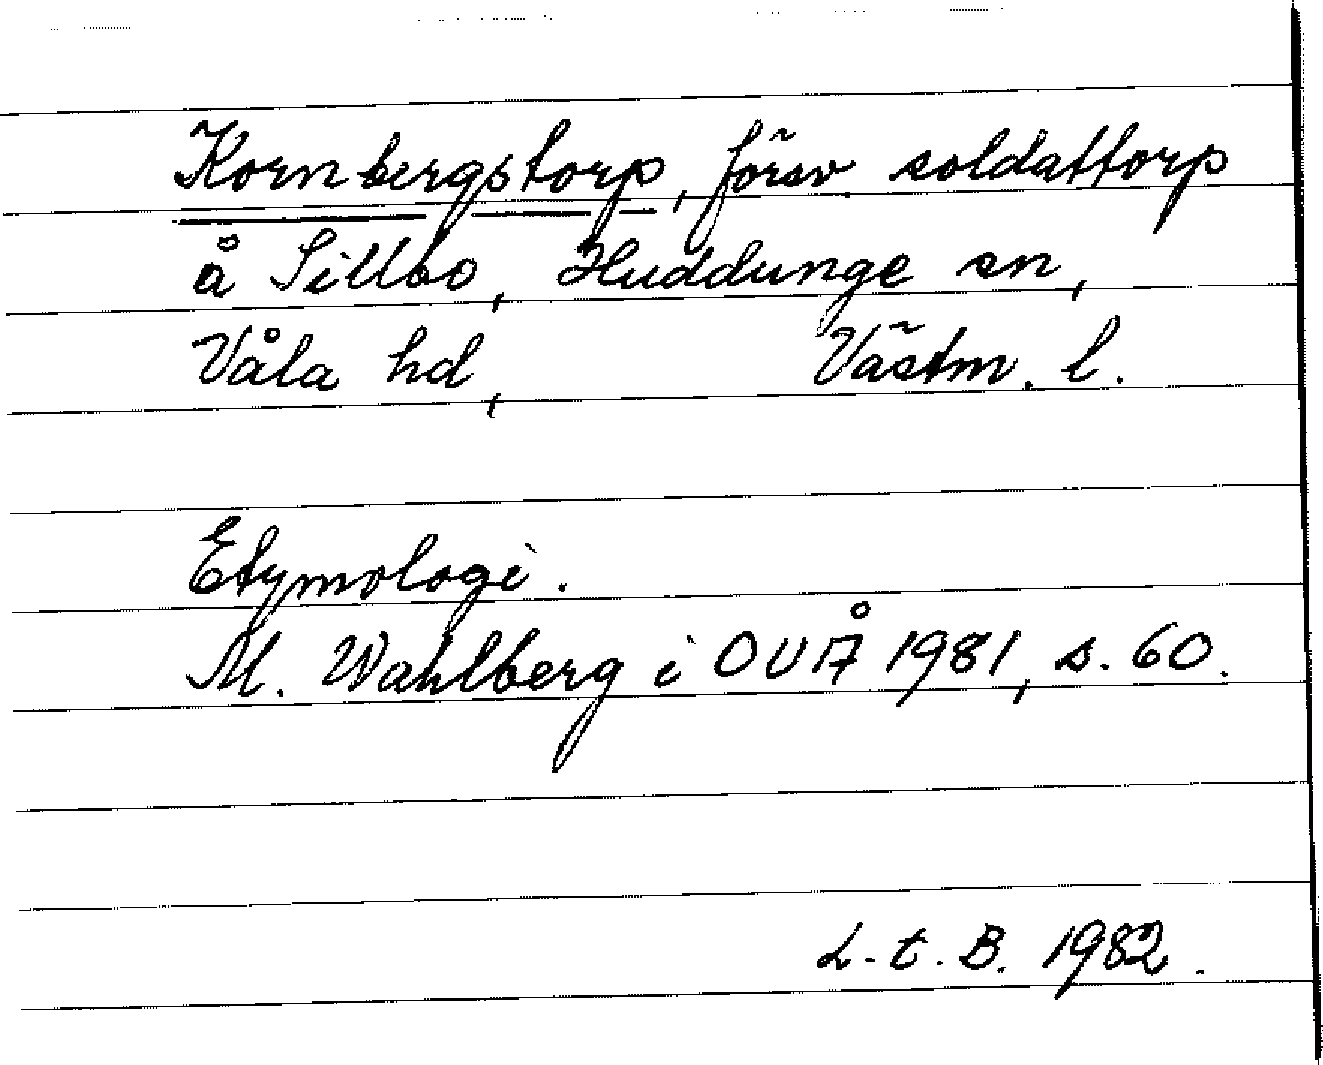 Kornbergstorp, försv. soldattorp
å Sillbo, Huddunge sn,
Våla hd, Västm. l.
Etymologi.
M. Wahlberg i OUÅ 1981, s. 60.
L.t.B. 1982.